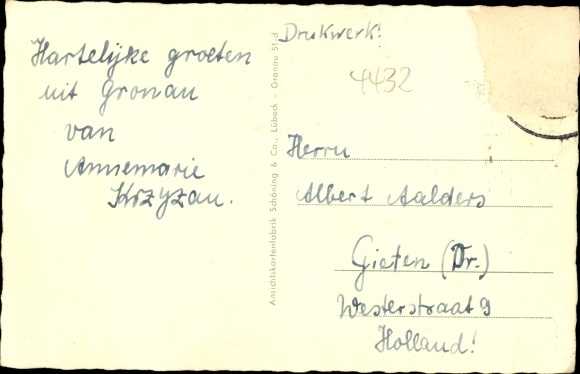 Hartelijke groeten
uit Gronau
van
Annemarie
Krzyzau.
Ansichtskartenfabrik Schöning & Co., Lübeck - Gronau 51 d
Drukwerk!
4432
Herrn
Albert Aalders
Gieten (Dr.)
Westerstraat 9
Holland!